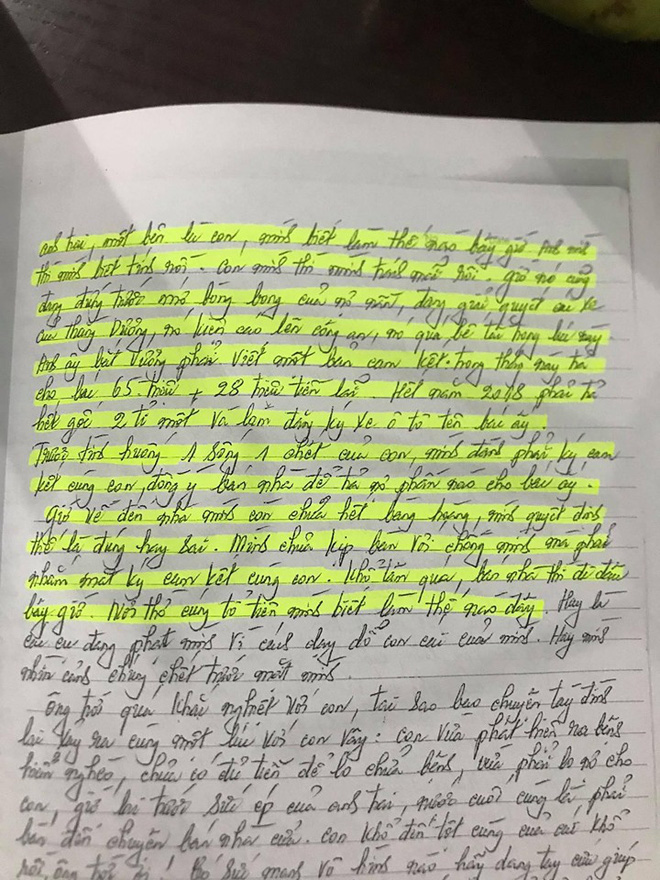 anh hai, một bên là con, mình biết làm thế nào bây giờ Anh mình
thì mình biết tính rồi. Con mình thì mình thấy rồi. giờ nó cũng
đang đứng trước mớ bòng bong của nợ nần, đang giải quyết cái xe
của thằng Dưỡng, nó kiện cáo lên công an, nó qua
Anh ấy bắt Vương phải viết một bản cam kết. trong tháng này trả
cho bác 65 triệu + 28 triệu tiền lãi. Hết năm 2018 phải trả
hết gốc 2 tỉ mốt và làm đăng ký xe ô tô tên bác ấy.
Trước tình huống 1 sống 1 chết của con, mình đành phải ký cam
kết cùng con, đồng ý bán nhà để trả nợ phần nào cho bác ấy.
Giờ về đến nhà mình còn chưa hết bàng hoàng, mình quyết định
thế là đúng hay sai. Mình chưa kịp bàn với chồng mình mà phải
nhắm mắt ký cam kết cùng con. Khổ tâm quá, bán nhà thì đi đâu
bây giờ. Nơi thờ cúng tổ tiên mình biết làm thế nào đây. Hay là
các cụ đang phạt mình vì cách dạy dỗ con cái của mình. Hay mình
nhìn cảnh chúng chết trước mắt mình.
Ông trời quá khắc nghiệt với con, tại sao bao chuyện tày đình
lại xảy ra cùng một lúc với con vậy: con vừa phát hiện ra bệnh
hiểm nghèo, chưa có đủ tiền để lo chữa bệnh, vừa phải lo nợ cho
con, giờ lại trước sức ép của anh trai, nước cuối cùng là phải
bàn đến chuyện bán nhà cửa. Con khổ đến tột cùng của cái khổ
rồi, ông trời ơi! Có sức mạnh vô hình nào hãy dang tay cứu giúp